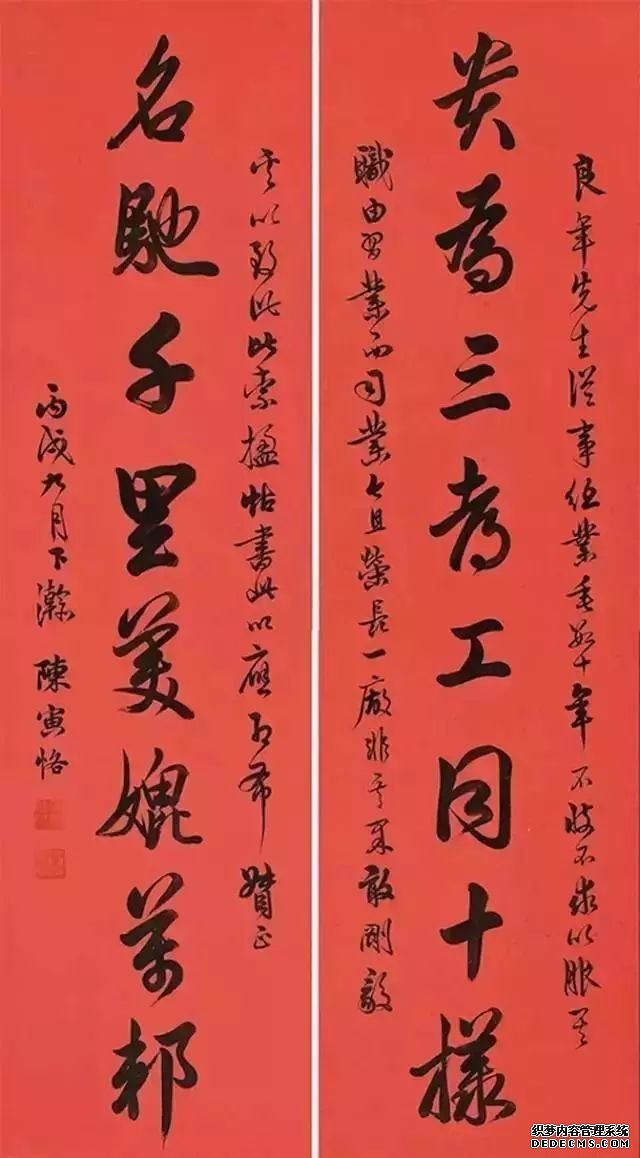 良年先生從事任業垂數十年不忮不求以服其
為三考工同十樣
職由習業而司業且榮長一廠非其果敢剛毅
以致此索楹帖書此以應即希 正
名馳千里美媲萬邦
丙戌九月下澣 陳寅恪
织梦内容管理系统
DEDECMS.COM